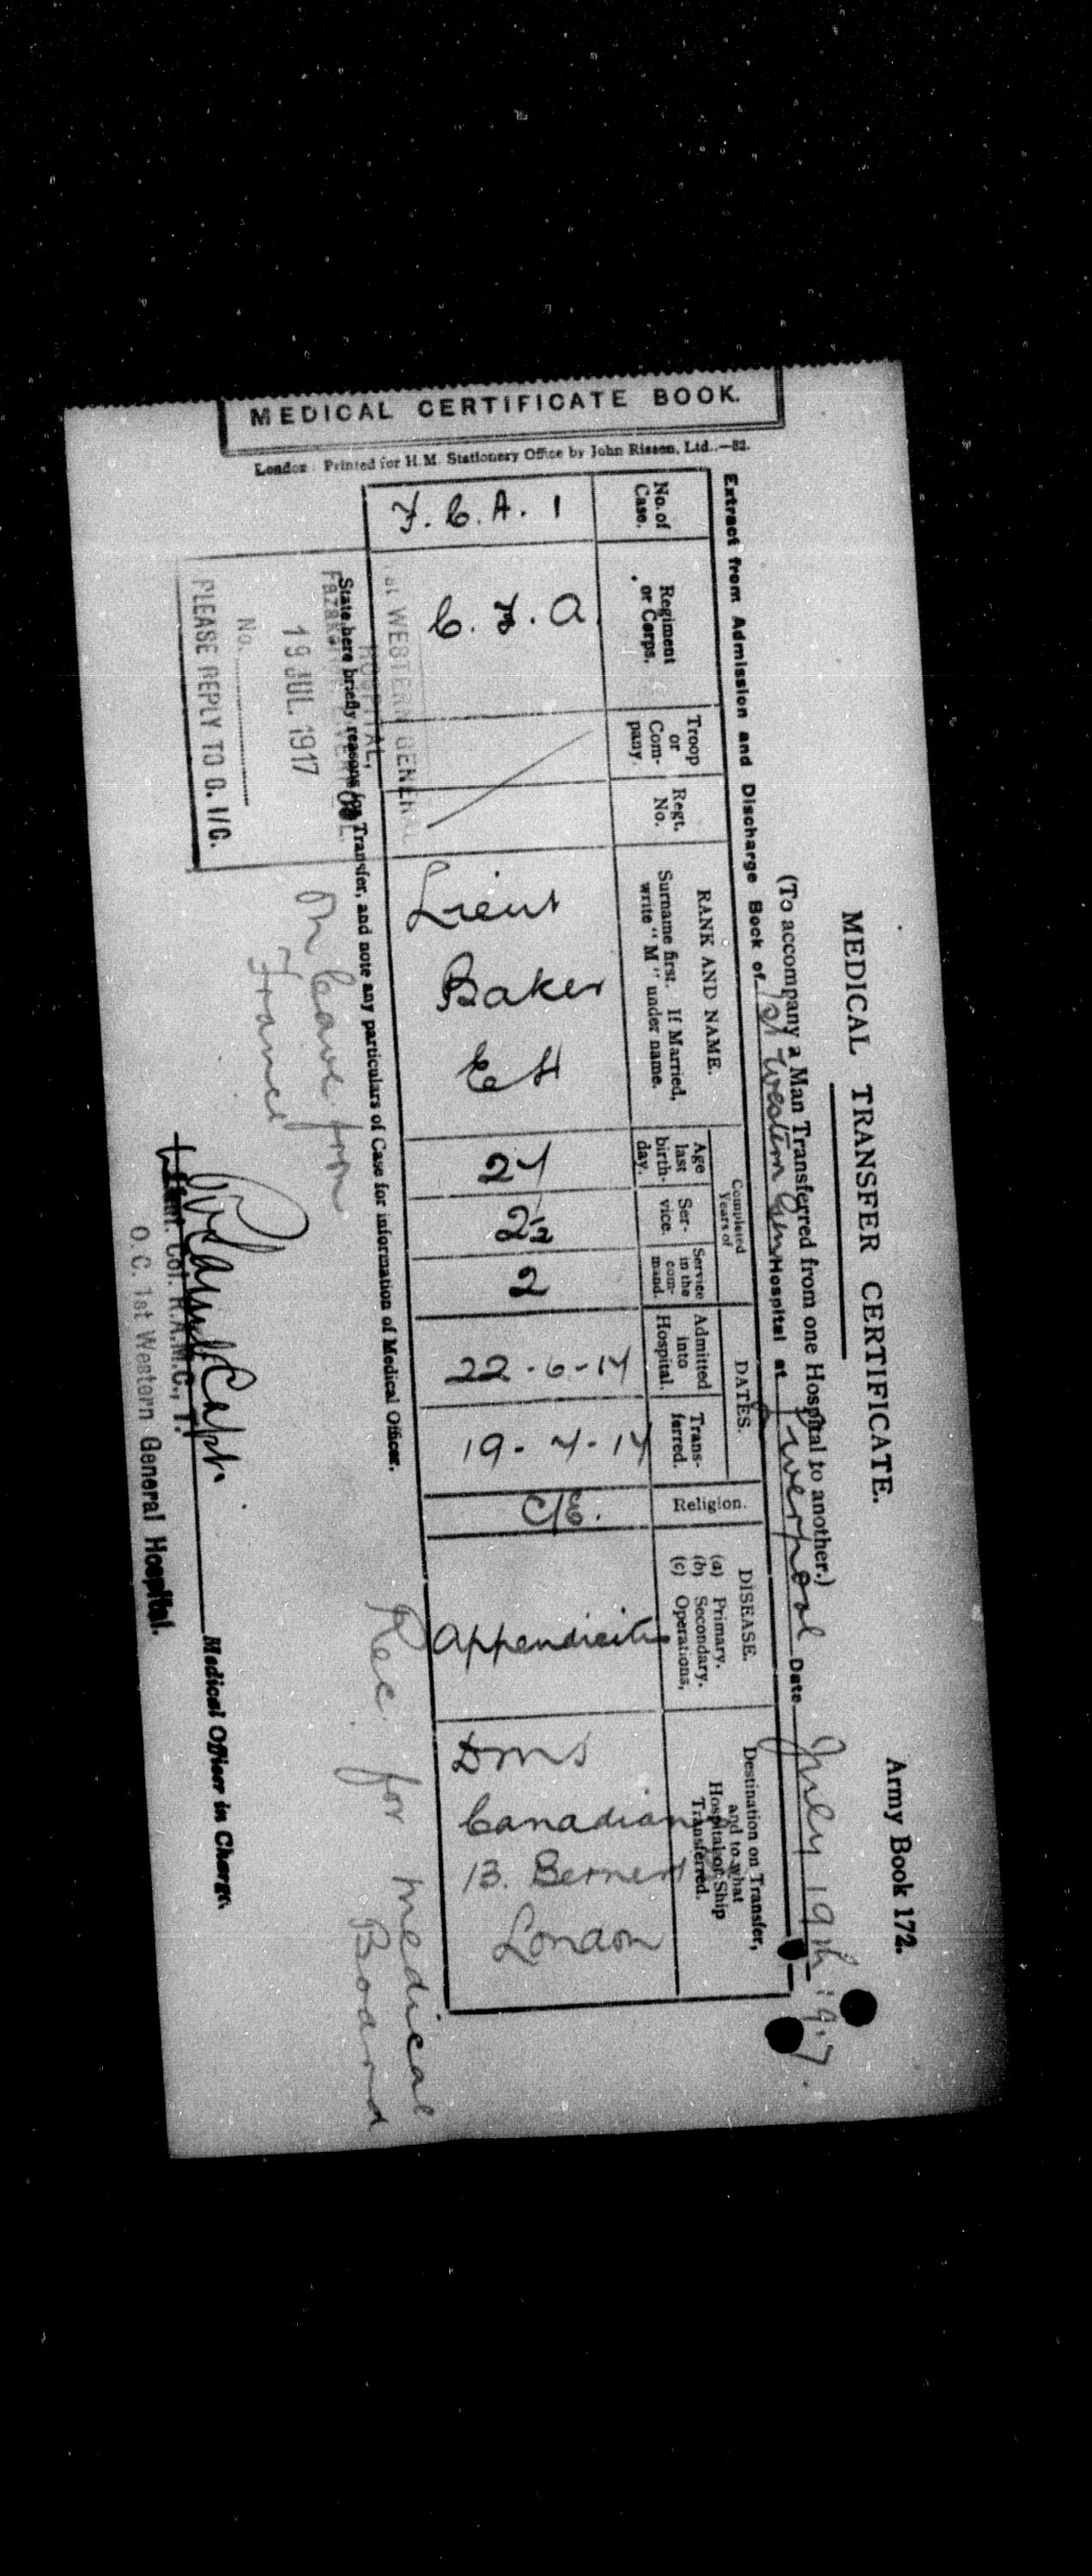 Army Book 172.
MEDICAL TRANSFER CERTIFICATE.
(To accompany a Man Transferred from one Hospital to another.)
Extract from Admission and Discharge Book of 1st Western Gen Hospital at Liverpool Date July 19th 1917.
No. of Case.
Regiment or Corps.
Troop or Com-pany.
Regt. No.
RANK AND NAME.
Surname first. If Married, write "M" under name.
Completed Years of
Age last birth-day.
Ser-vice.
Service in the com-mand.
DATES.
Admitted into Hospital.
Trans-ferred.
Religion.
DISEASE.
(a) Primary.
(b) Secondary.
(c) Operations,
Destination on Transfer, and to what Hospital or Ship Transferred.
C. F. A.
Lieut
Baker
E H
2½
2
22-6-17
19-7-17
C/E.
Appendicitis
DMS
Canadian
13. Berners
London
State here briefly reasons for Transfer, and note any particulars of Case for information of Medical Officer.
Rec. for Medical
Board
On leave from
France
WESTERN GENERAL
HOSPITAL,
19 JUL. 1917
No.
PLEASE REPLY TO O. I/C.
Capt
Medical Officer in Charge
Lieut. Col. R.A.M.C., T.
O.C. 1st Western General Hospital.
MEDICAL CERTIFICATE BOOK.
London: Printed for H.M. Stationery Office by John Rissen, Ltd.—82.